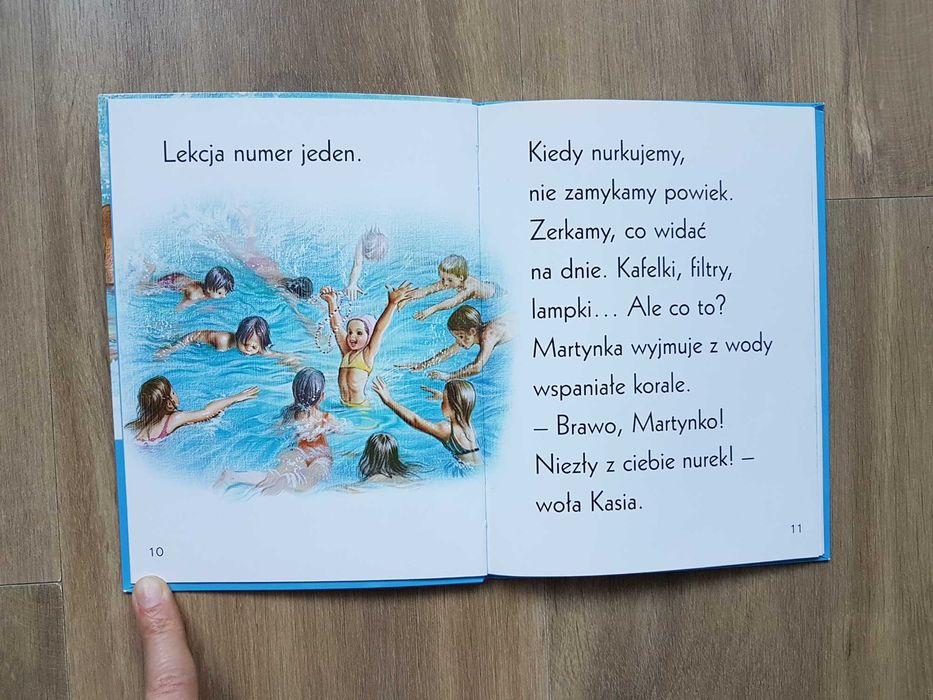 Lekcja numer jeden.
10
Kiedy nurkujemy,
nie zamykamy powiek.
Zerkamy, co widać
na dnie. Kafelki, filtry,
lampki... Ale co to?
Martynka wyjmuje z wody
wspaniałe korale.
– Brawo, Martynko!
Niezły z ciebie nurek! –
woła Kasia.
11